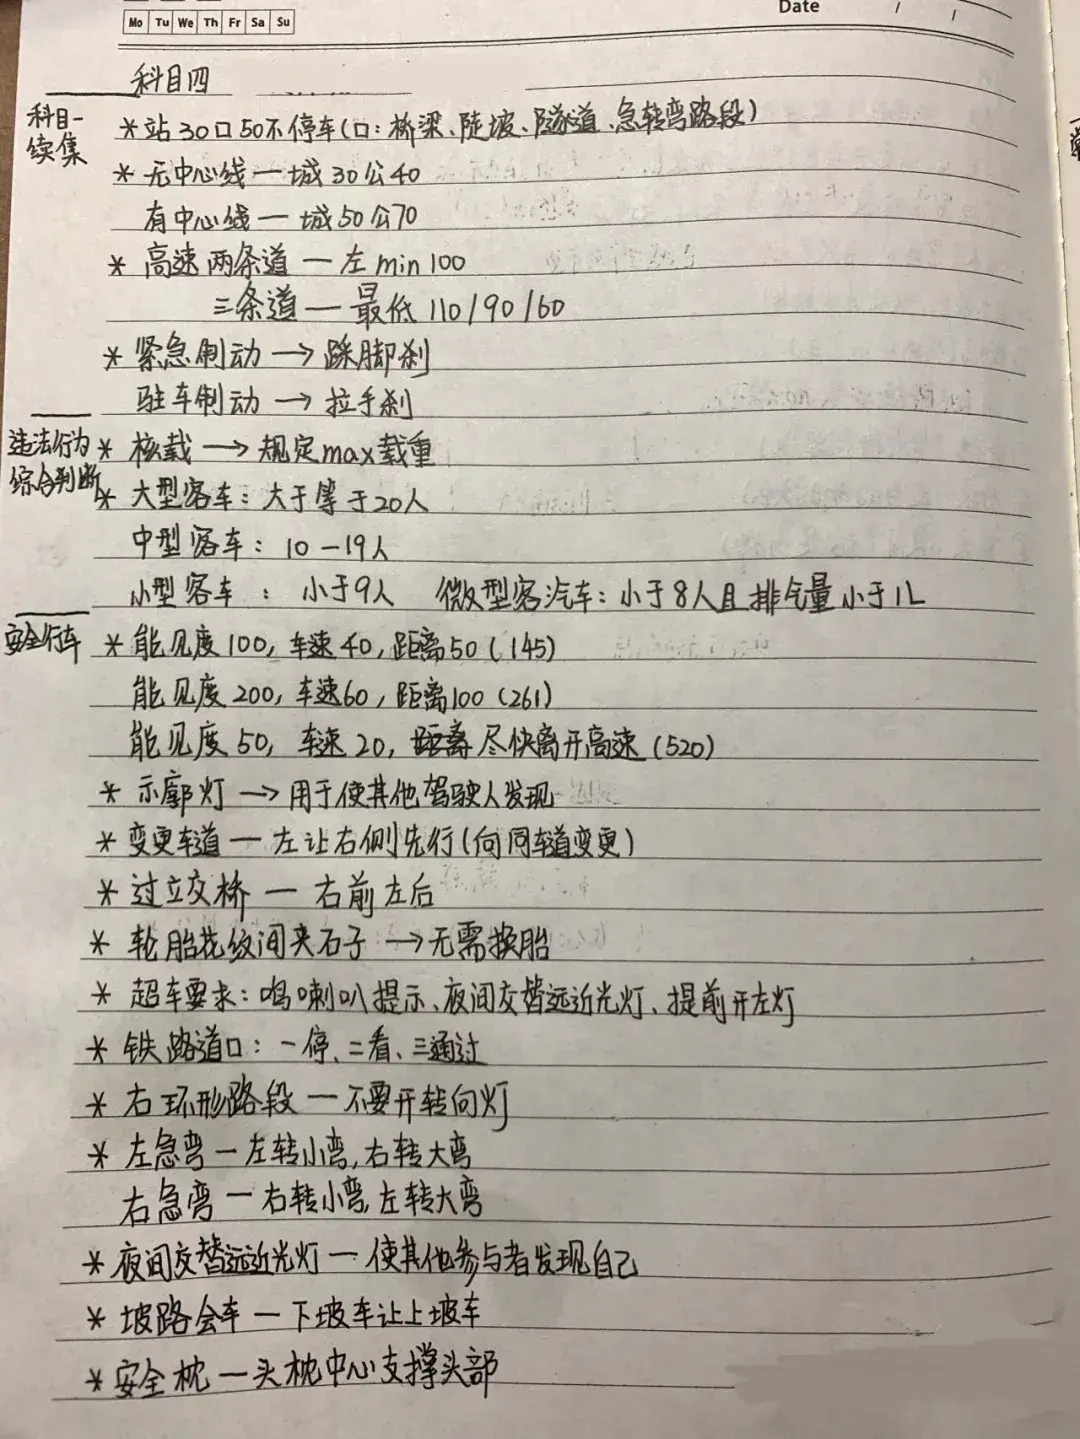 Date / /
Mo Tu We Th Fr Sa Su
科目四
科目一
续集
*站30口50不停车(口:桥梁、陡坡、隧道、急转弯路段)
*无中心线一城30公40
有中心线一城50公70
*高速两条道一左min100
三条道一最低110/90/60
*紧急制动→踩脚刹
驻车制动→拉手刹
违法行为
综合判断
*核载→规定max载重
*大型客车:大于等于20人
中型客车:10-19人
小型客车:小于9人 微型客汽车:小于8人且排气量小于1L
安全行车
*能见度100,车速40,距离50(145)
能见度200,车速60,距离100(261)
能见度50,车速20,距离尽快离开高速(520)
*示廓灯→用于使其他驾驶人发现
*变更车道一左让右侧先行(向同车道变更)
*过立交桥一右前左后
*轮胎花纹间夹石子→无需换胎
*超车要求:鸣喇叭提示、夜间交替远近光灯、提前开左灯
*铁路道口:一停、二看、三通过
*右环形路段一不要开转向灯
*左急弯一左转小弯,右转大弯
右急弯一右转小弯,左转大弯
*夜间交替远近光灯一使其他参与者发现自己
*坡路会车一下坡车让上坡车
*安全枕一头枕中心支撑头部